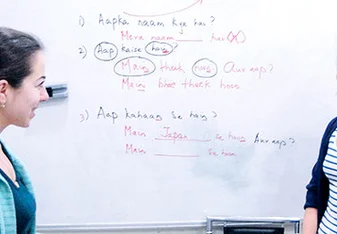 1) Aapka naam kya hai?
Mera naam ____ hai (X)
2) Aap kaise hain?
Main theek hoon Aur aap?
Main bhee theek hoon
3) Aap kahaan se hain?
Main Japan se hoon Aur aap?
Main ____ se hoon